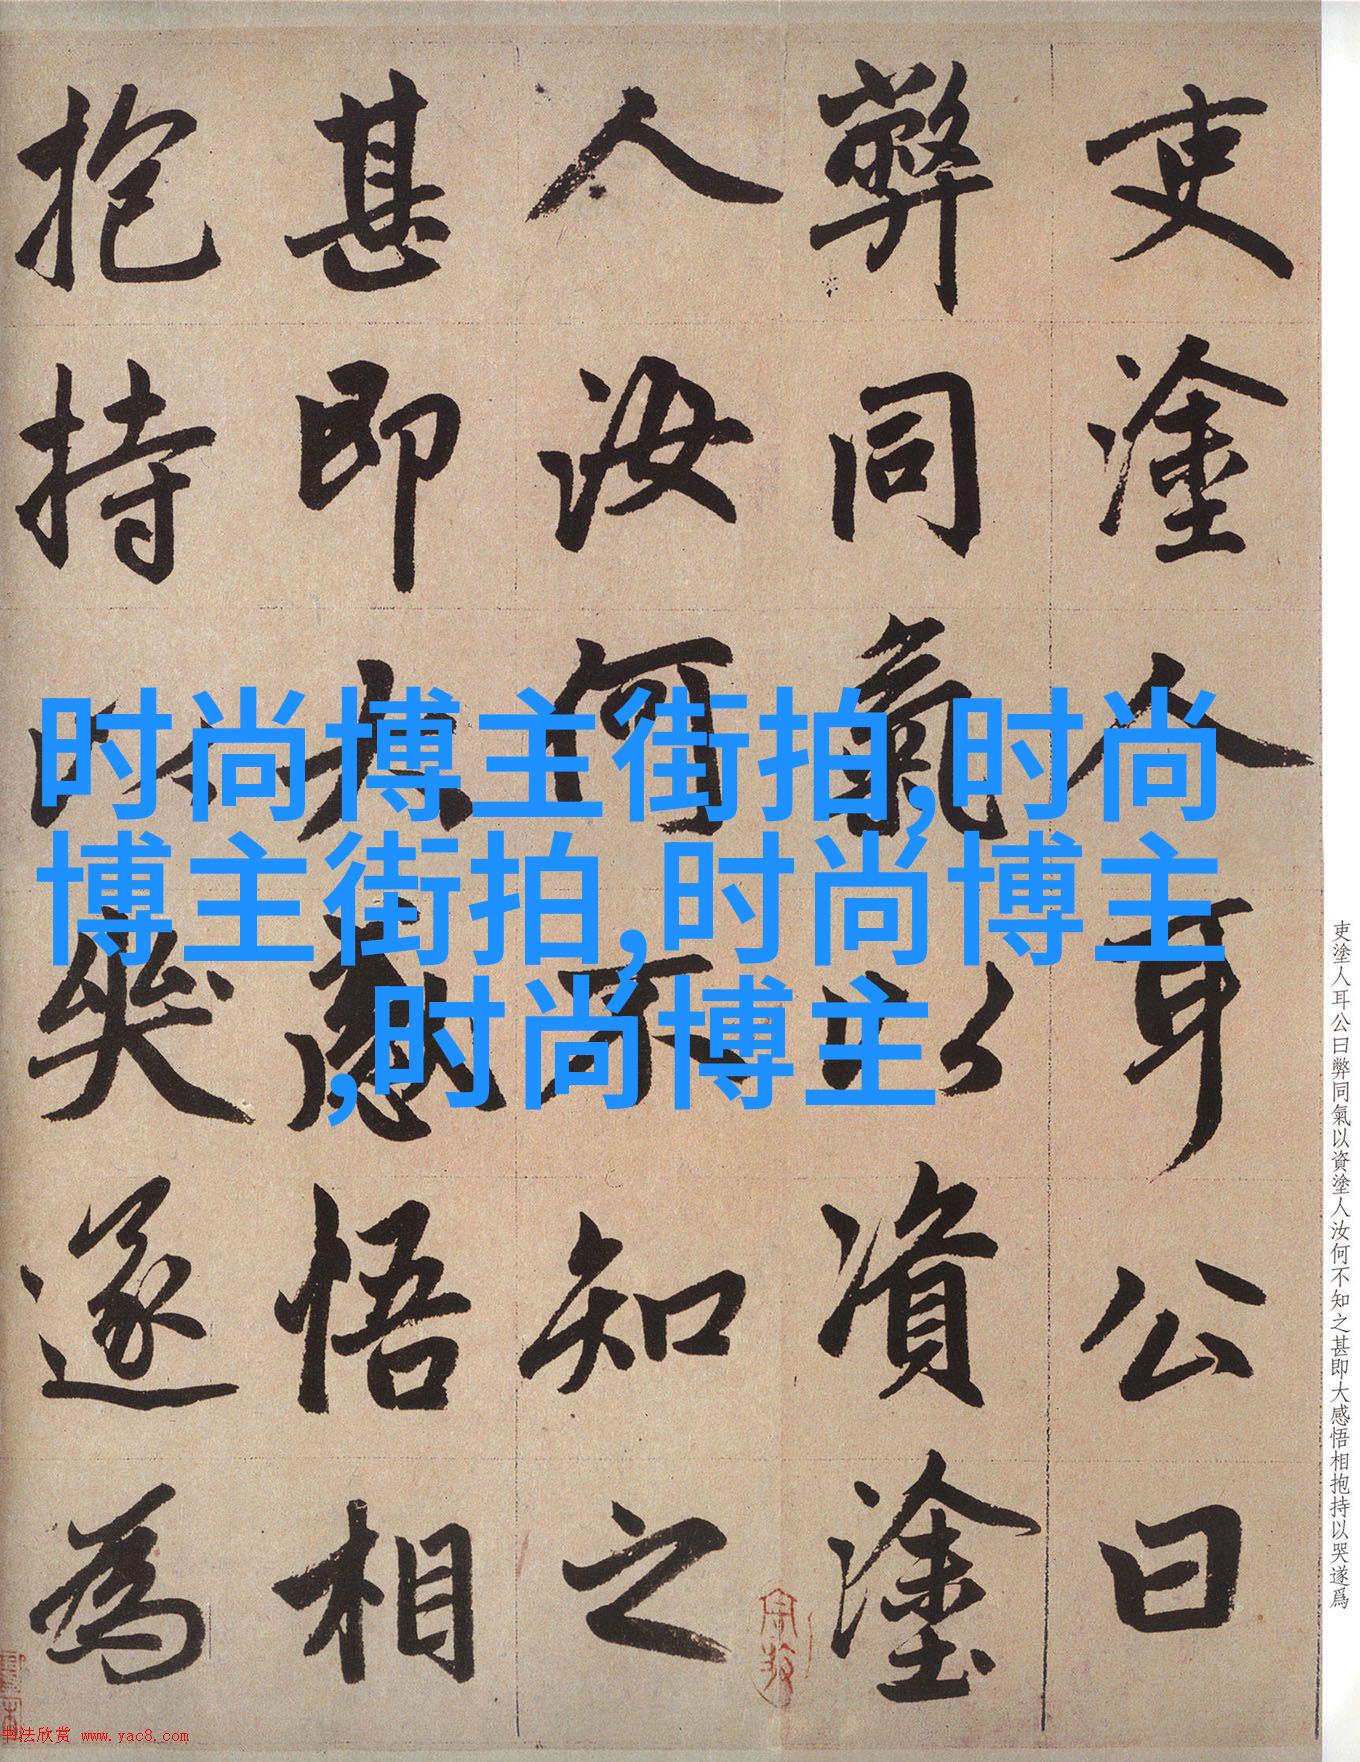 吏塗人耳公曰
弊同氣以資塗
人汝何不知之
甚即大感悟相
抱持以哭遂為
时尚博主街拍,时尚
博主街拍,时尚博主
,时尚博主
吏塗人耳公曰弊同氣以資塗人汝何不知之甚即大感悟相抱持以哭遂爲
书法欣赏 www.yac8.com